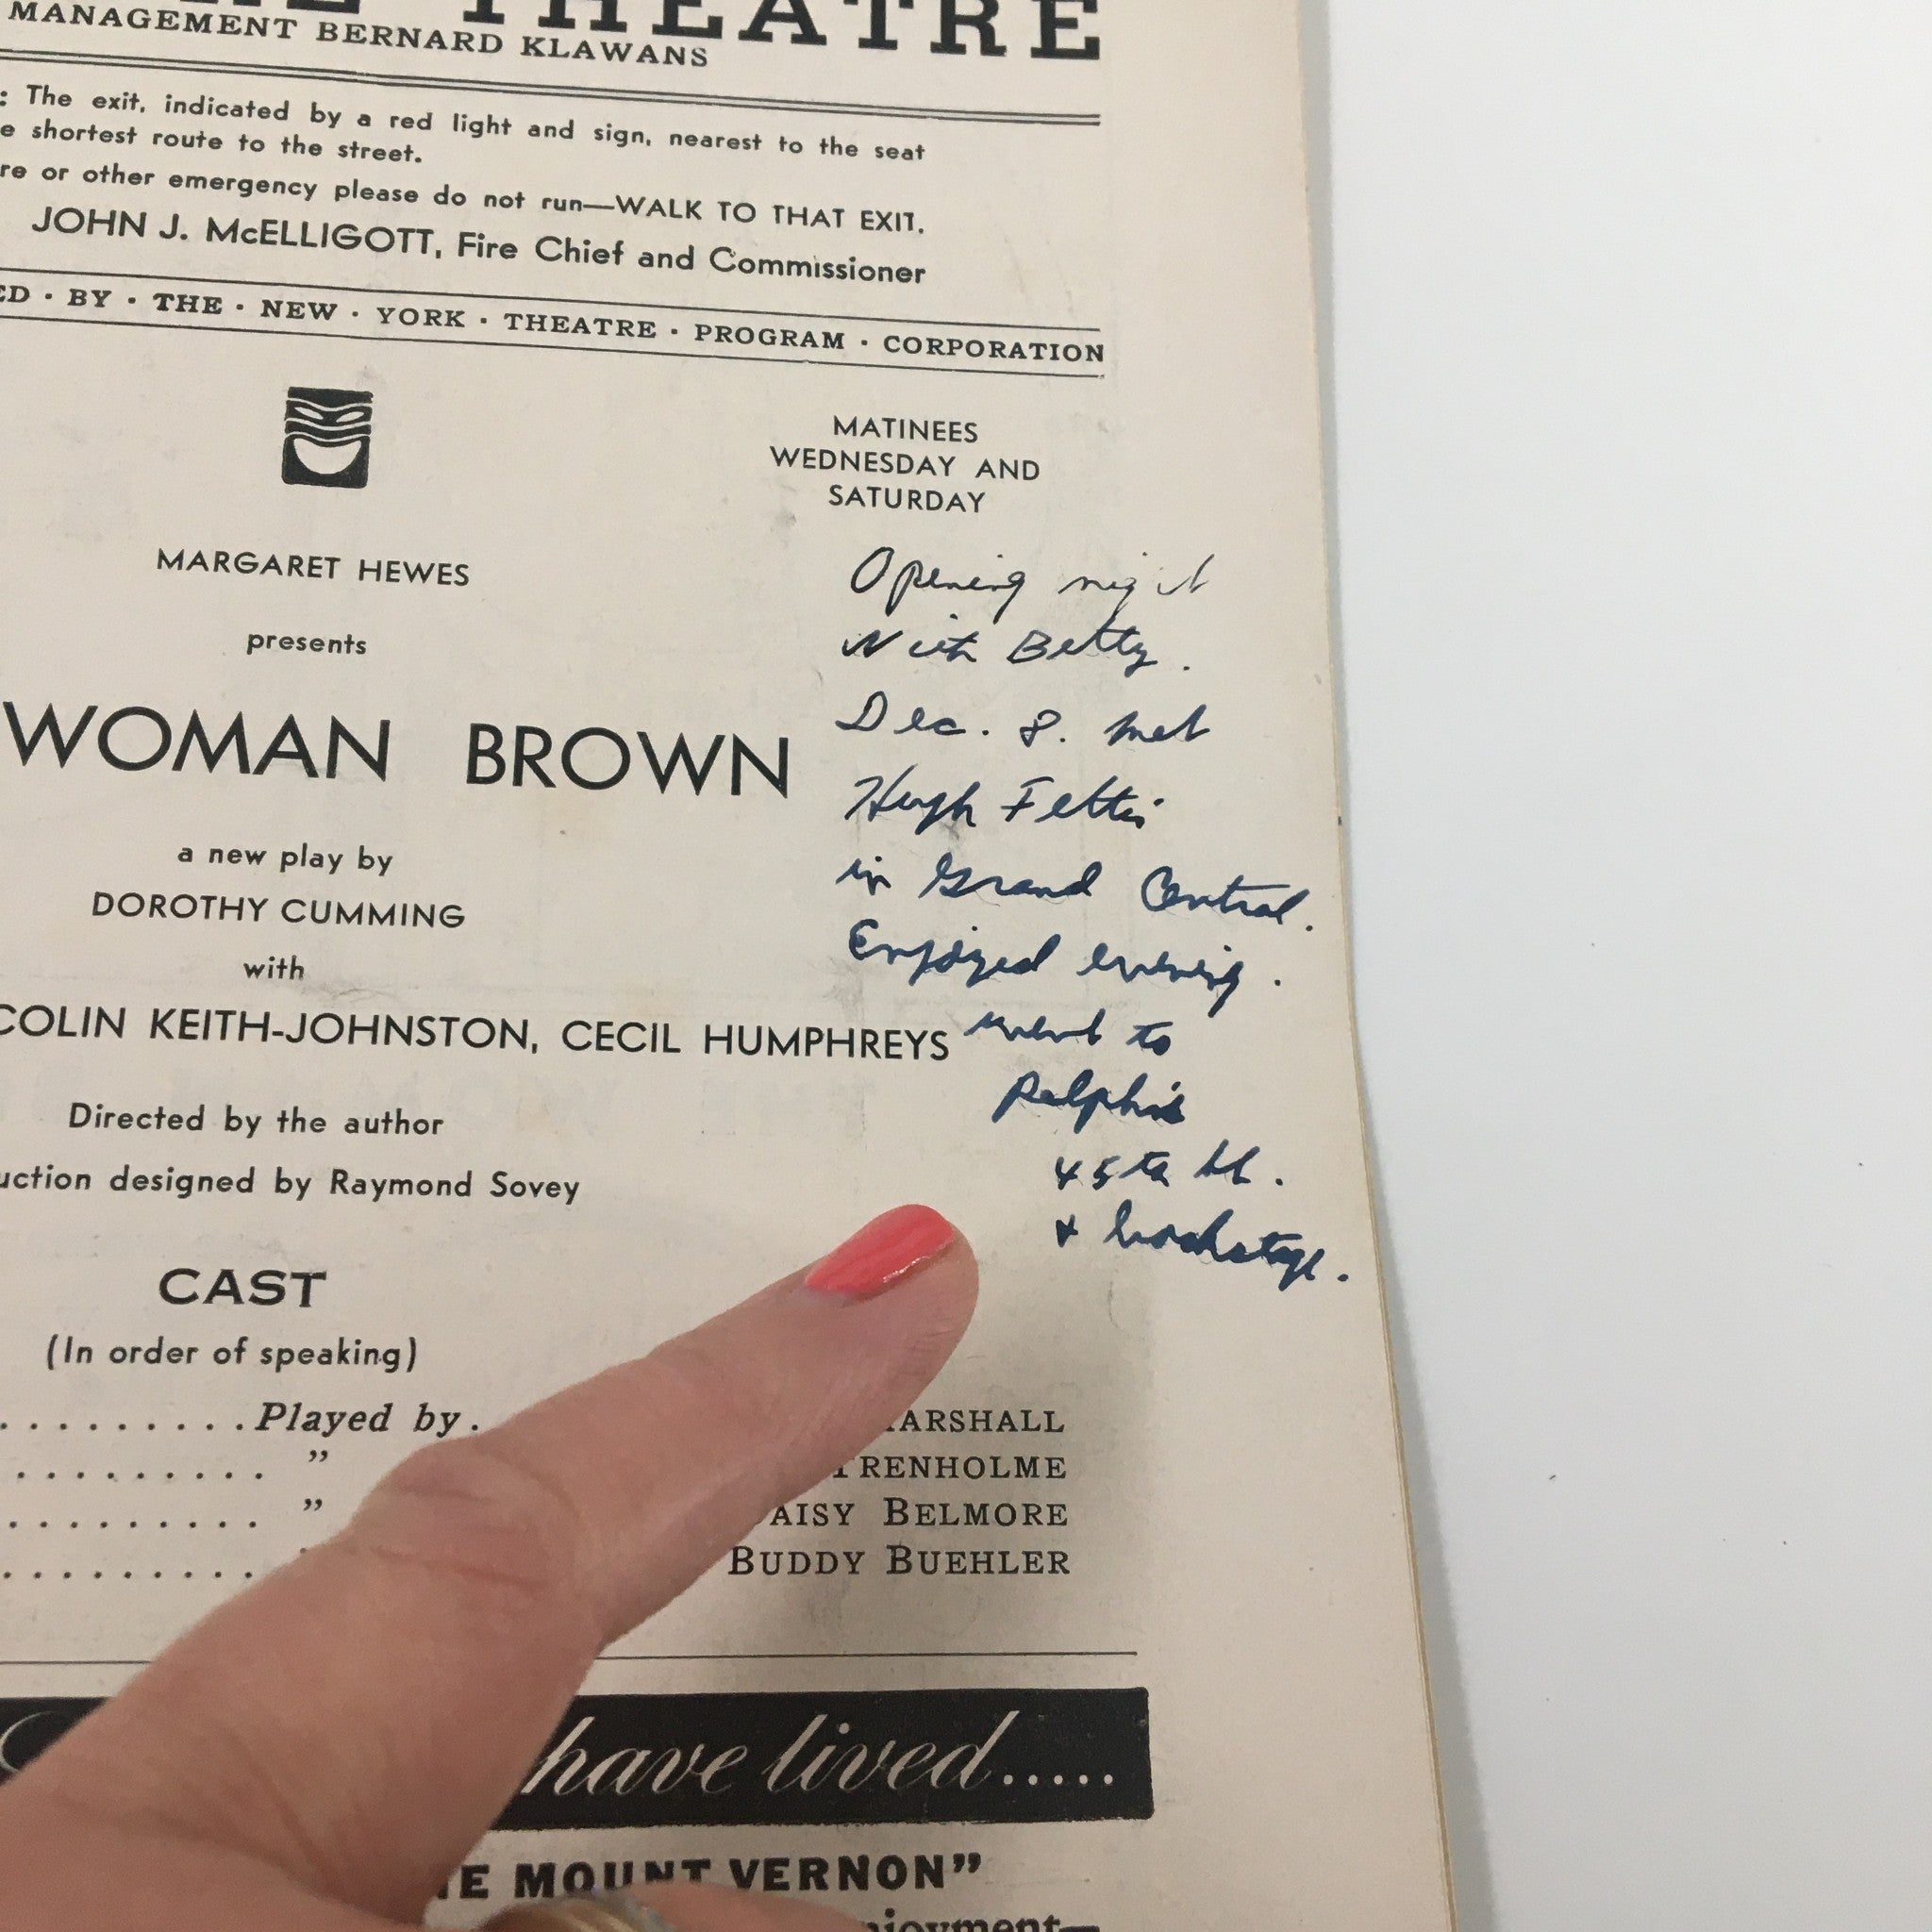 THEATRE
MANAGEMENT BERNARD KLAWANS
: The exit, indicated by a red light and sign, nearest to the seat
e shortest route to the street.
re or other emergency please do not run—WALK TO THAT EXIT.
JOHN J. McELLIGOTT, Fire Chief and Commissioner
ED · BY · THE · NEW · YORK · THEATRE · PROGRAM · CORPORATION
MATINEES
WEDNESDAY AND
SATURDAY
MARGARET HEWES
presents
WOMAN BROWN
a new play by
DOROTHY CUMMING
with
COLIN KEITH-JOHNSTON, CECIL HUMPHREYS
Directed by the author
uction designed by Raymond Sovey
Opening night
With Betty.
Dec. 8. met
Hugh
in Grand Central.
Enjoyed evening.
went to
Ralph's
45th St.
+ backstage.
CAST
(In order of speaking)
.........Played by. ARSHALL
......... " TRENHOLME
......... " AISY BELMORE
......... BUDDY BUEHLER
have lived.....
E MOUNT VERNON"
njoyment—